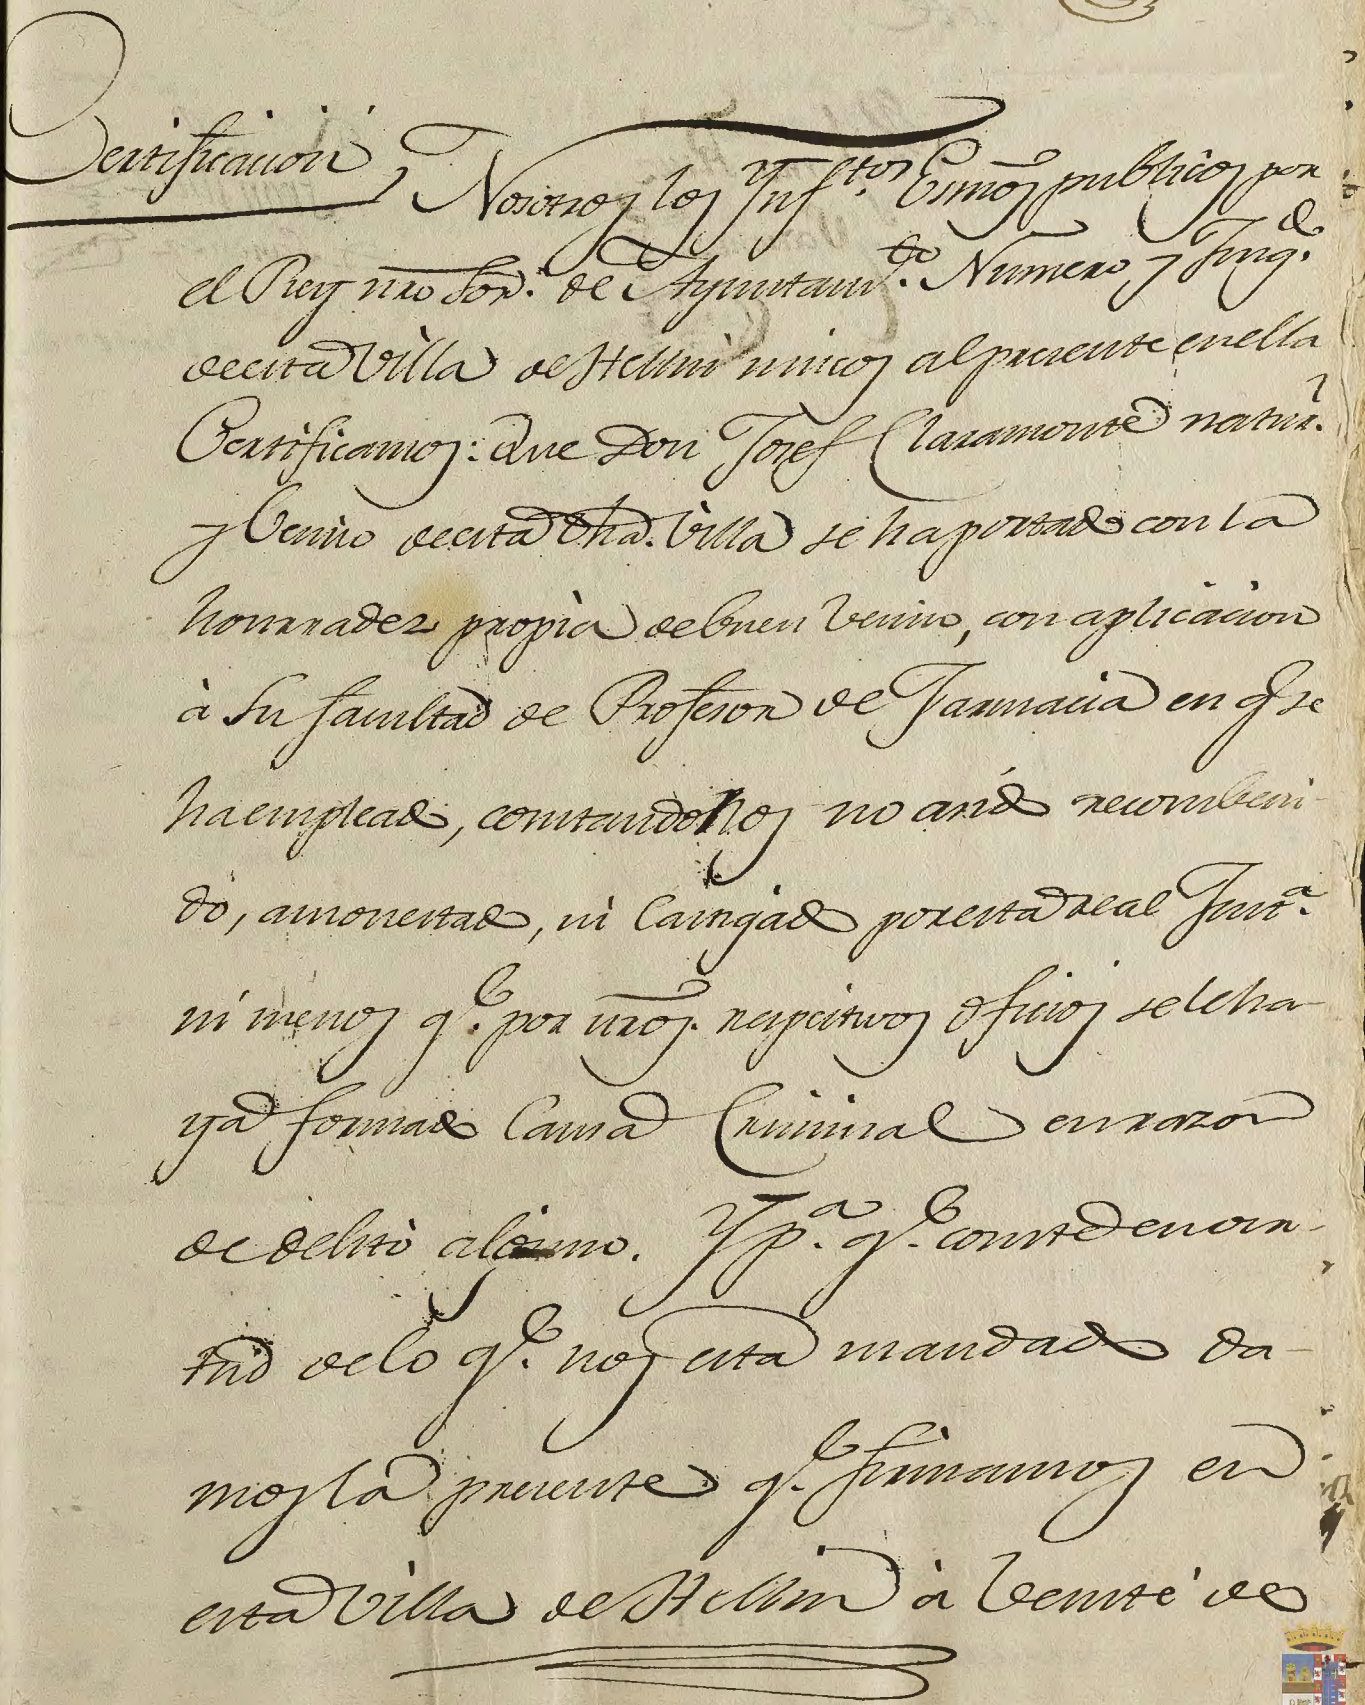 Certificacion, Nosotros los Ynf.tos Esnõs publicos por
el Rey nro Sor. de Ayuntam.to Numero y Juzg.do
de esta Villa de Hellin unicos al presente en ella
Certificamos: Que Don Josef Claramonte natur.l
y Vecino de esta dha. Villa se ha portado con la
honrradez propia de buen Vecino, con aplicacion
à su facultad de Profesor de Farmacia en q.e se
ha empleado, constandonos no asido recombeni-
do, amonestado, ni Corrigido por esta real Just.a
ni menos q.e por nros. respectivos oficios se le ha-
ya formado Causa Criminal en razon
de delito alguno. Y p.a q.e conste en vir-
tud de lo q.e nos esta mandado da-
mos la presente q.e firmamos en
esta Villa de Hellin à Veinte de